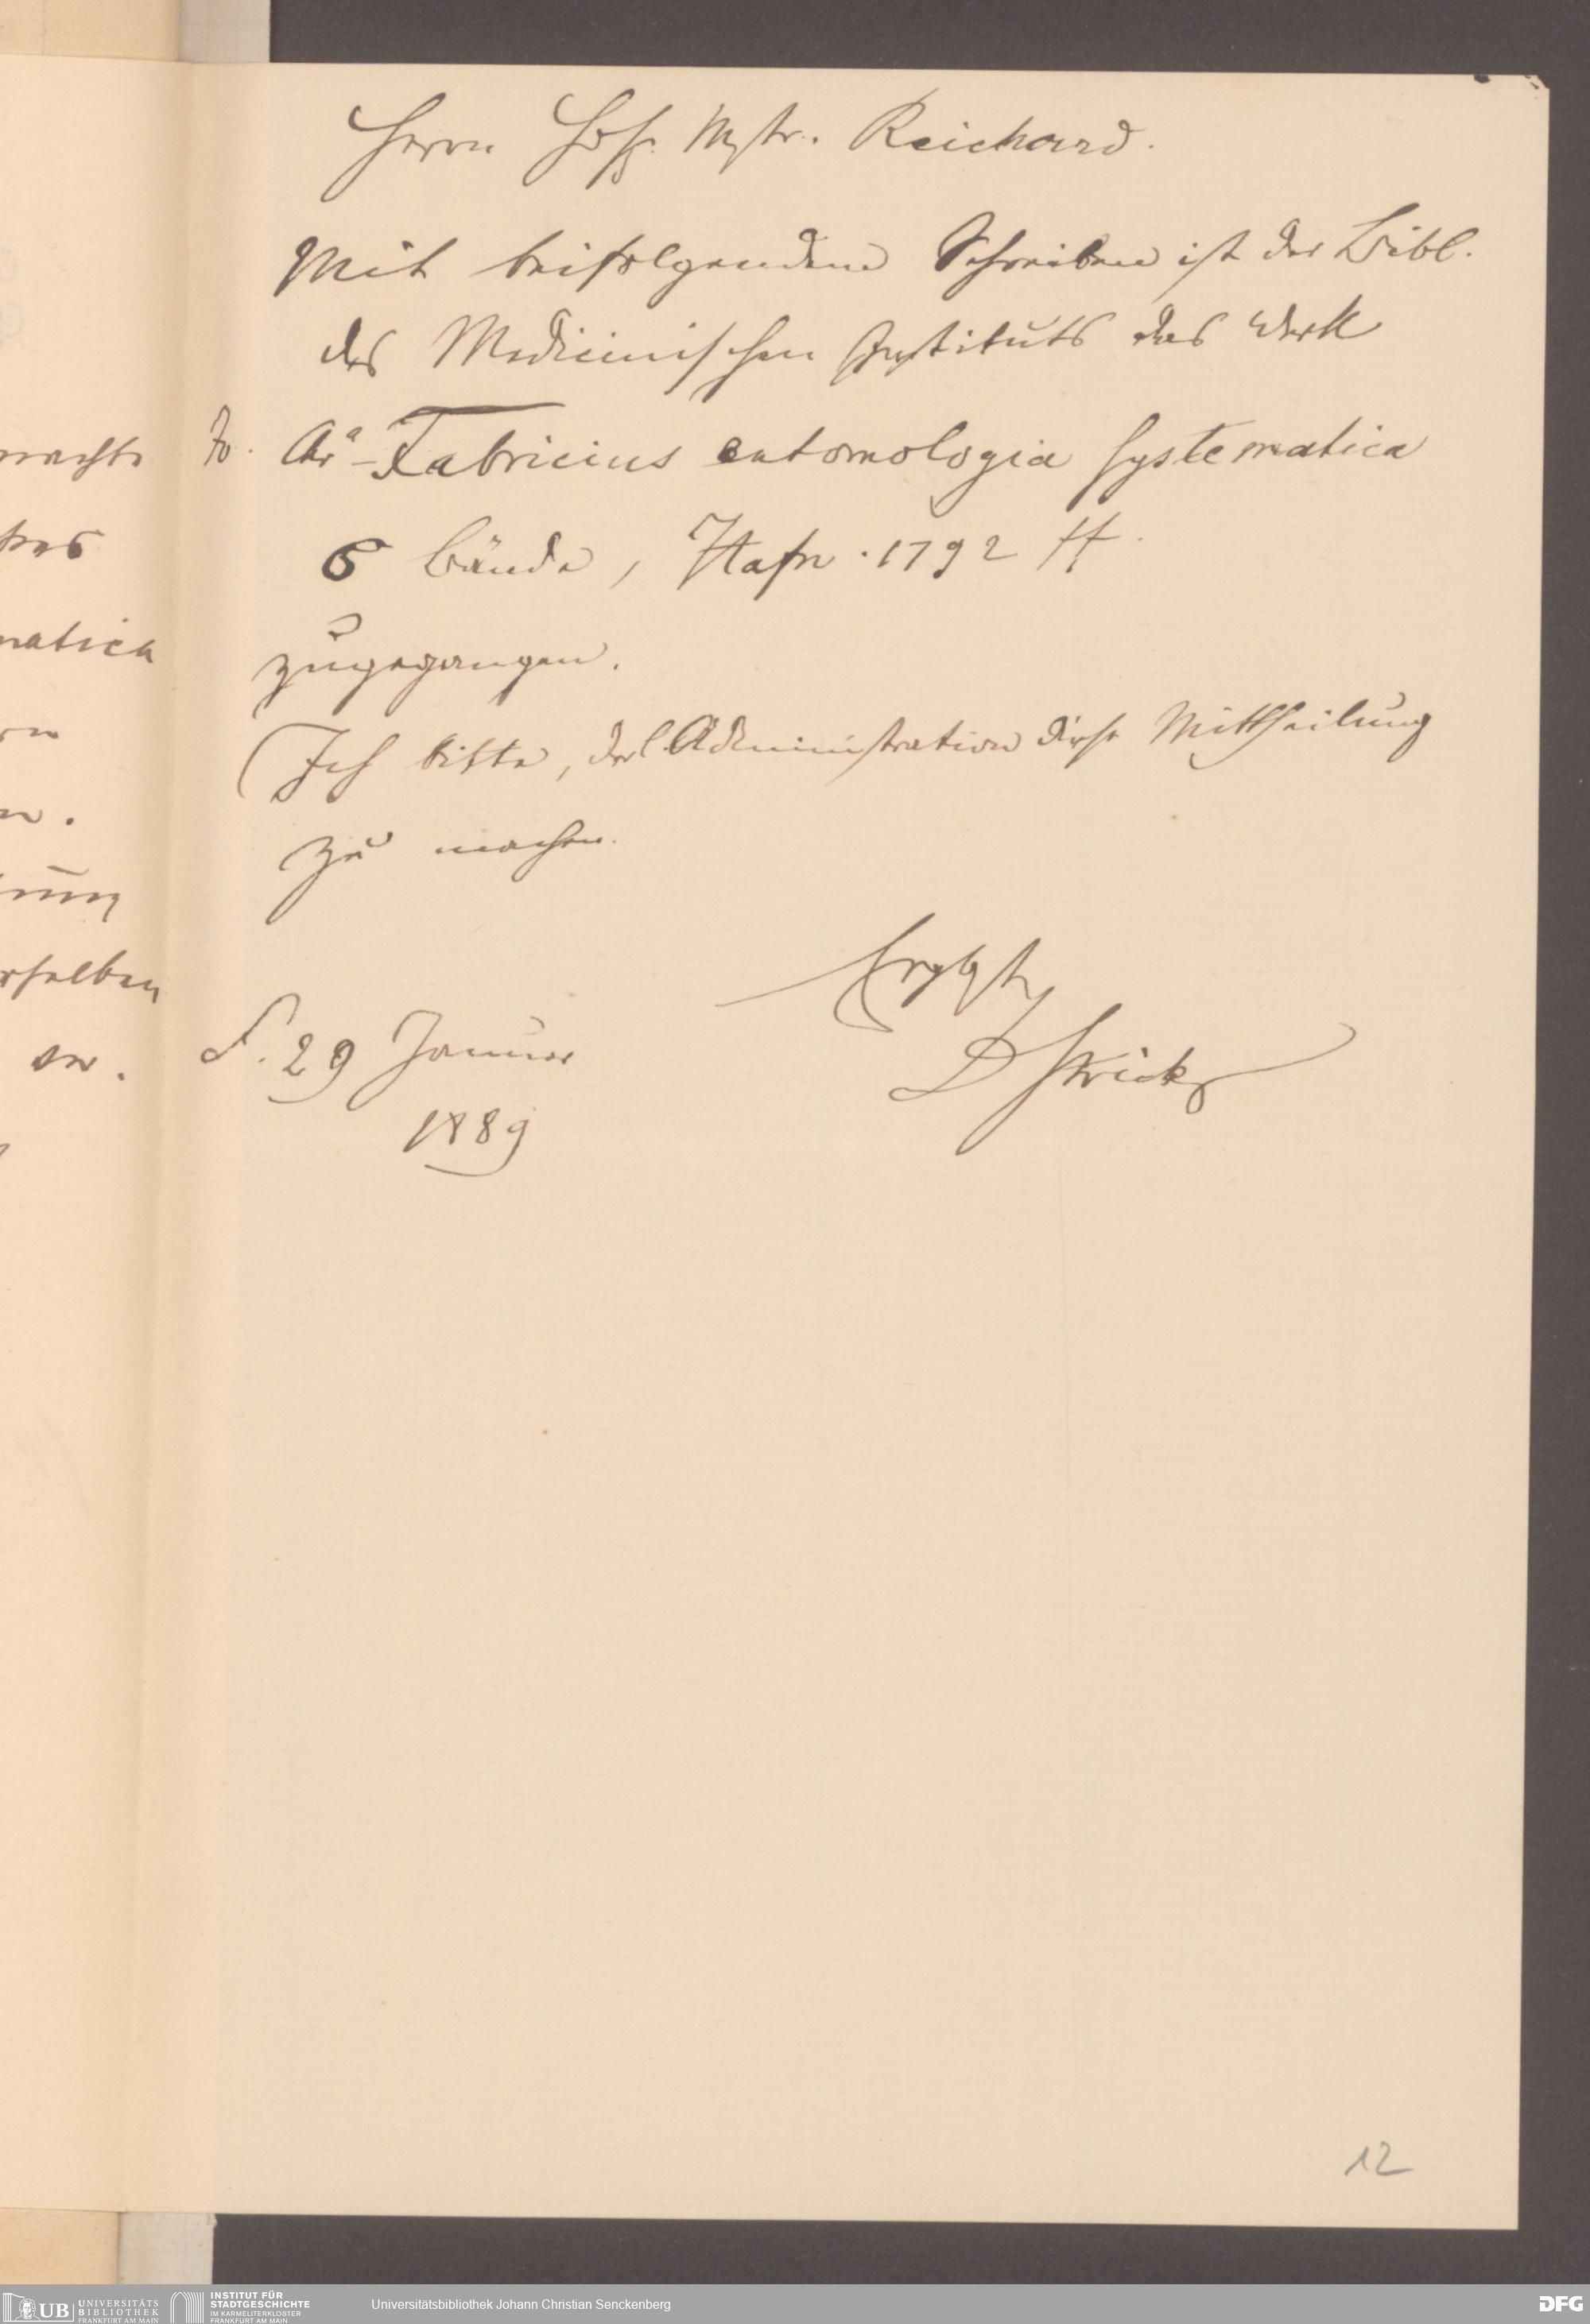 Herrn Hosp. Mstr. Reichard.
Mit beifolgendem Schreiben ist der Bibl.
des Medicinischen Instituts das Werk
Jo. Chr. Fabricius entomologia systematica
6 Bände, Hafn. 1792 ff.
zugegangen.
Ich bitte, der l. Administration diese Mittheilung
zu machen.
Ergbst
Dr Stricker
F. 29 Januar
1889
12
machte
natica
rselben
UB UNIVERSITÄTS
BIBLIOTHEK
FRANKFURT AM MAIN
INSTITUT FÜR
STADTGESCHICHTE
IM KARMELITERKLOSTER
FRANKFURT AM MAIN
Universitätsbibliothek Johann Christian Senckenberg
DFG